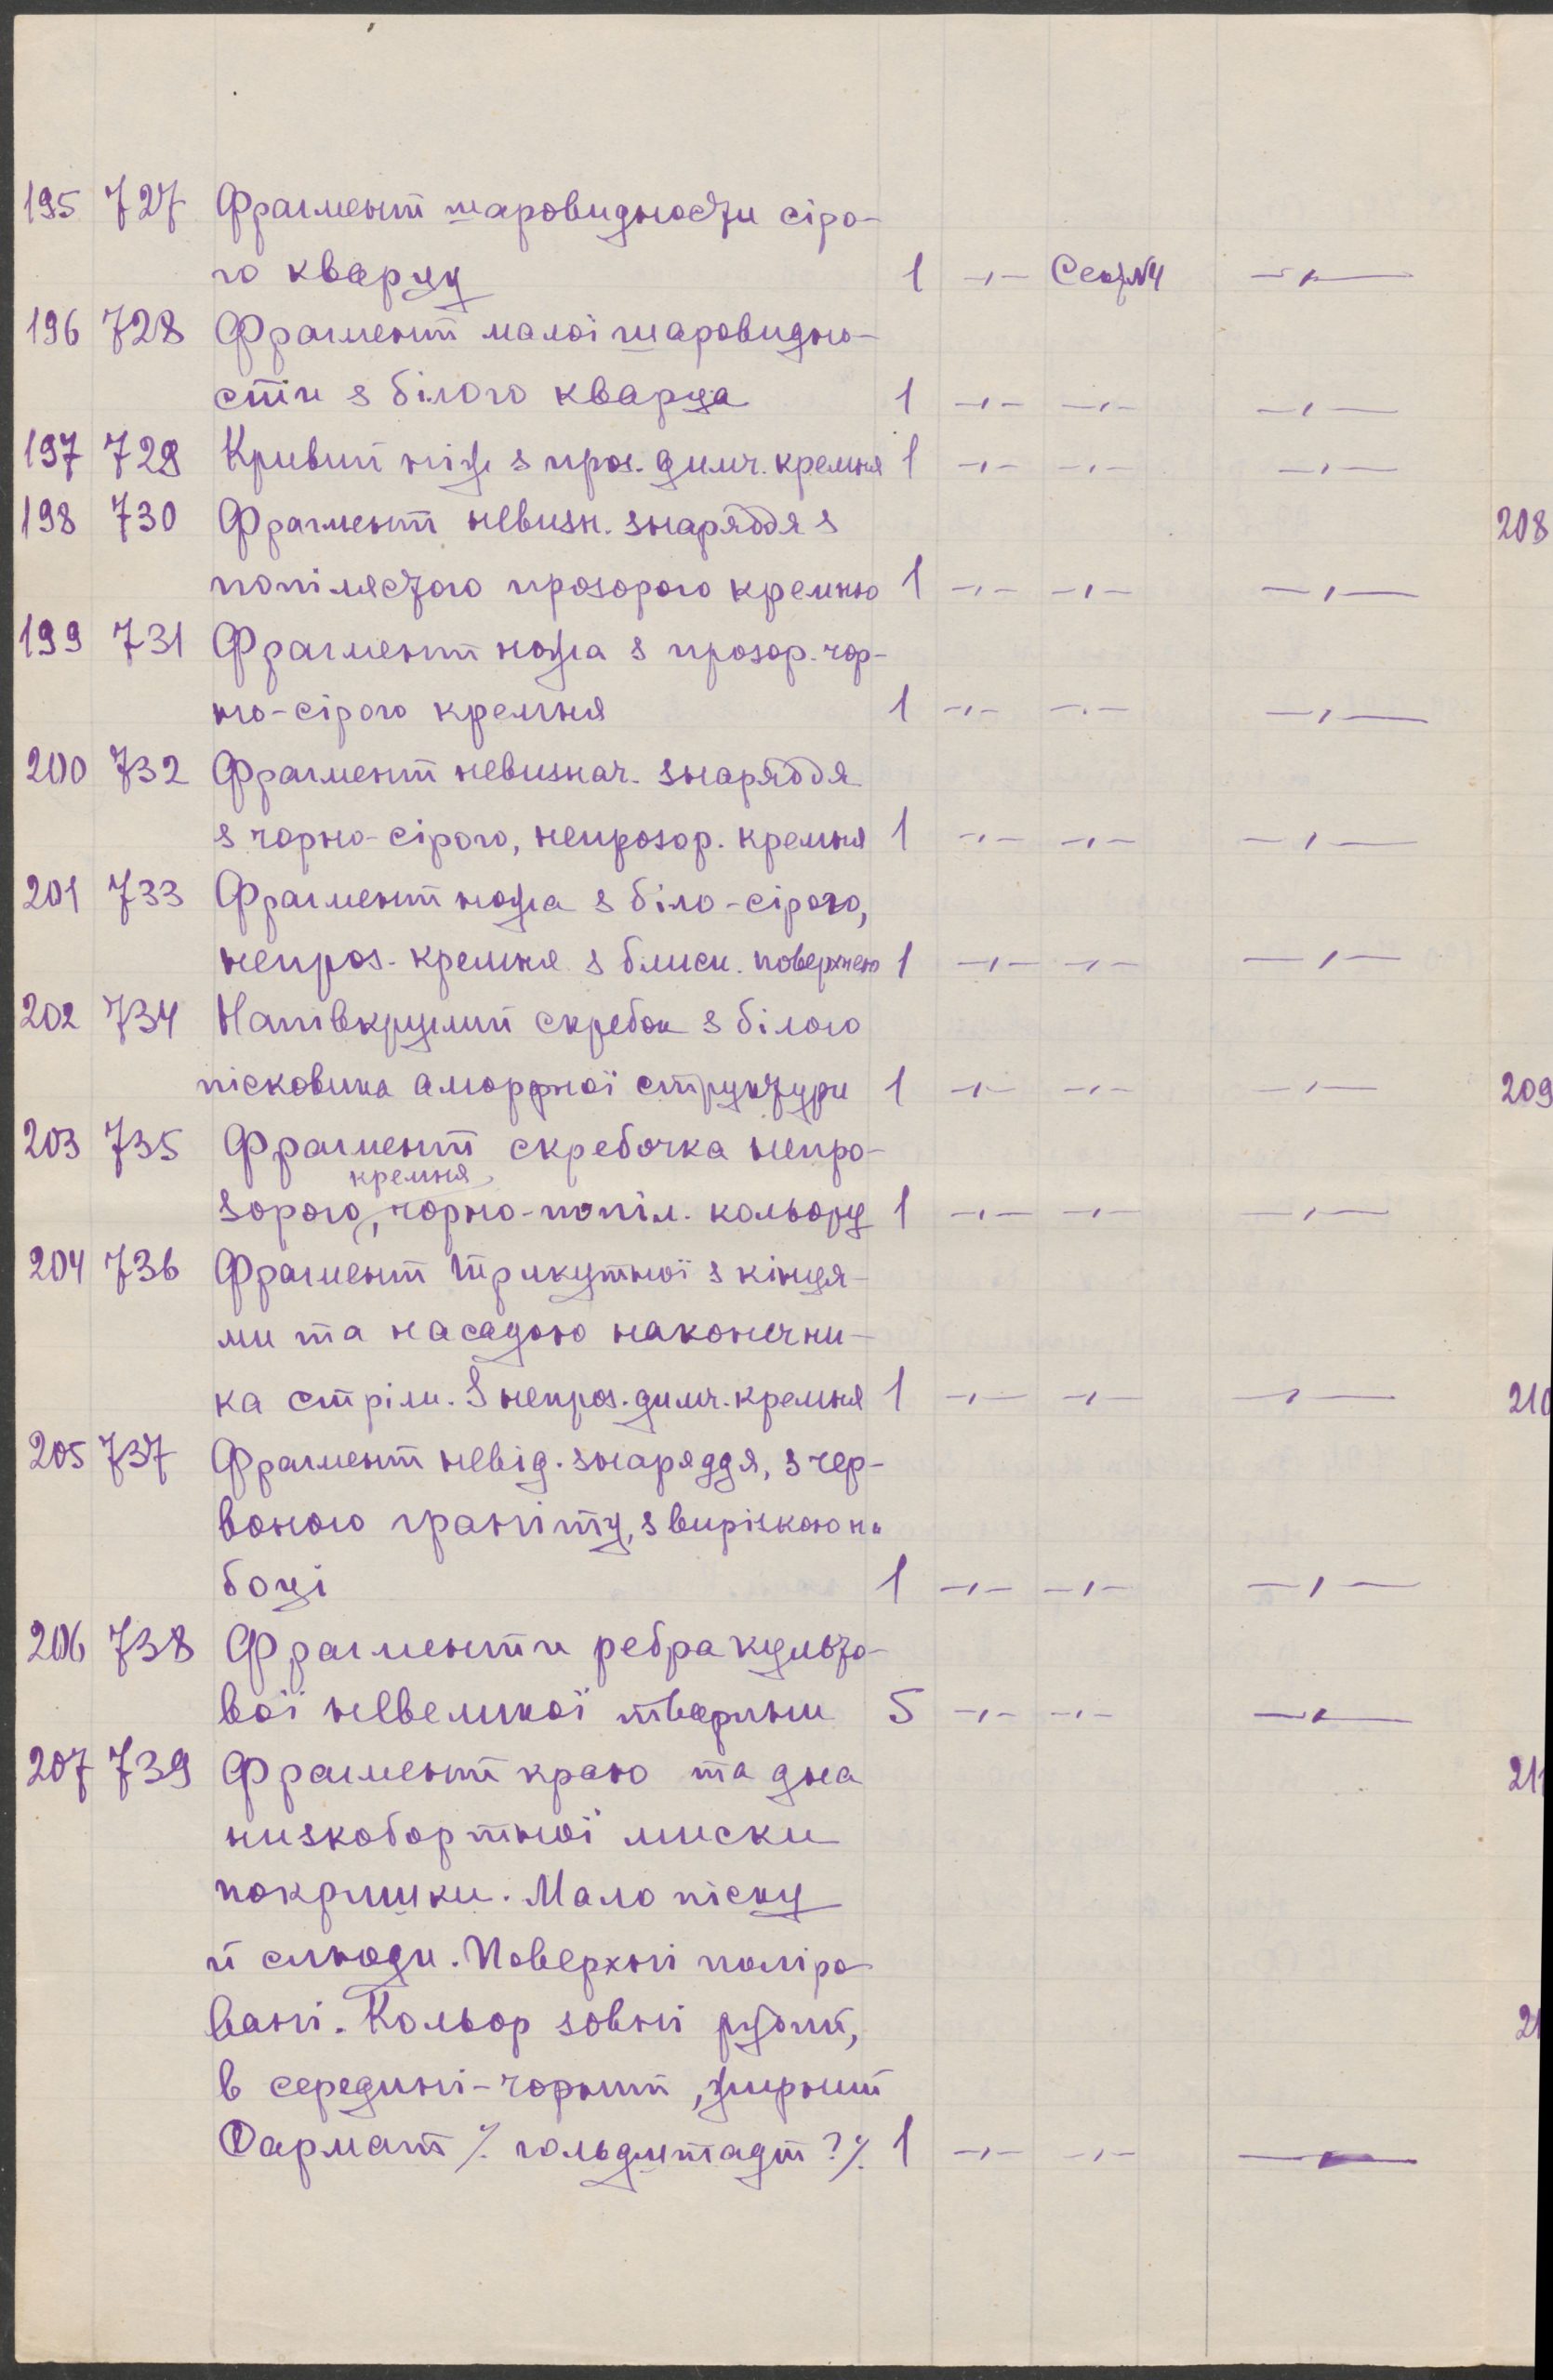 195 727 Фрагмент шаровидности сіро-
го кварцу 1 -,- Сект.№4 -,-
196 728 Фрагмент малої шаровидно-
сти з білого кварца 1 -,- -,- -,-
197 729 Кривий ніж з проз. димч. кремня 1 -,- -,- -,-
198 730 Фрагмент невизн. знаряддя з
попілястого прозорого кремню 1 -,- -,- -,-
199 731 Фрагмент ножа з прозор. чор-
но-сірого кремня 1 -,- -,- -,-
200 732 Фрагмент невизнач. знаряддя
з чорно-сірого, непрозор. кремня 1 -,- -,- -,-
201 733 Фрагмент ножа з біло-сірого,
непроз. кремня з блиск. поверхнею 1 -,- -,- -,-
202 734 Напівкруглий скребок з білого
пісковика аморфної структури 1 -,- -,- -,-
203 735 Фрагмент скребочка непро-
кремня,
зорого, чорно-попіл. кольору 1 -,- -,- -,-
204 736 Фрагмент трикутної з кінця-
ми та насадою наконечни-
ка стріли. З непроз. димч. кремня 1 -,- -,- -,-
205 737 Фрагмент невід. знаряддя, з чер-
воного граніту, з вирізкою на
боці 1 -,- -,- -,-
206 738 Фрагменти ребра культо-
вої невеликої тварини 5 -,- -,- -,-
207 739 Фрагмент краю та дна
низкобортної миски
покришки. Мало піску
й слюди. Поверхні поліро-
вані. Кольор зовні рудий,
в середині-чорний, жирний
Сармат /. гольдштадт ? /. 1 -,- -,- -,-
208
209
210
211
21